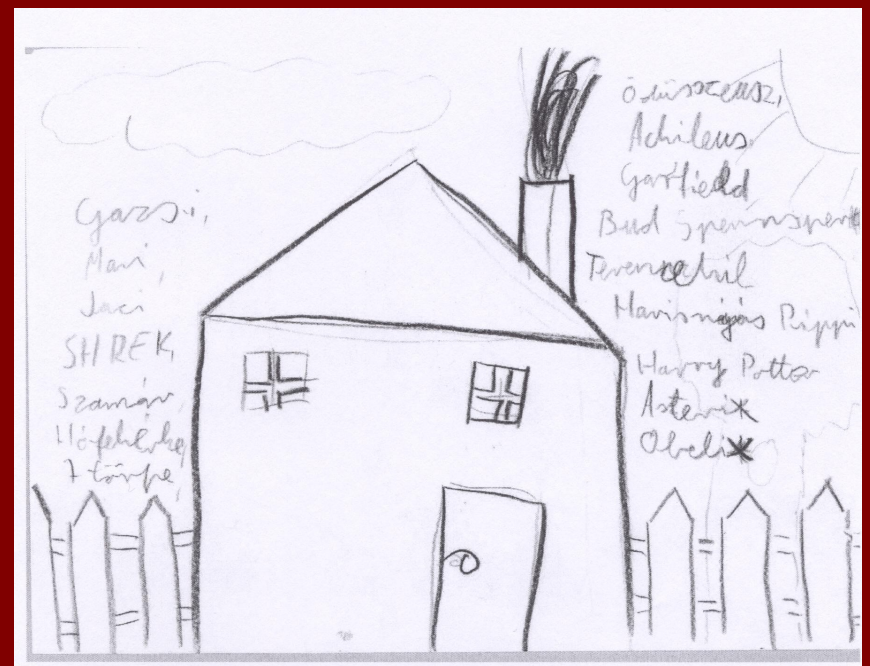 Gazsi,
Mari,
Jaci
SHREK,
Szamár,
Hófehérke
7 törpe,
Odüsszeusz,
Achileus
Garfield
Bud
Harisnyás Pippi
Harry Potter
Asterix
Obelix